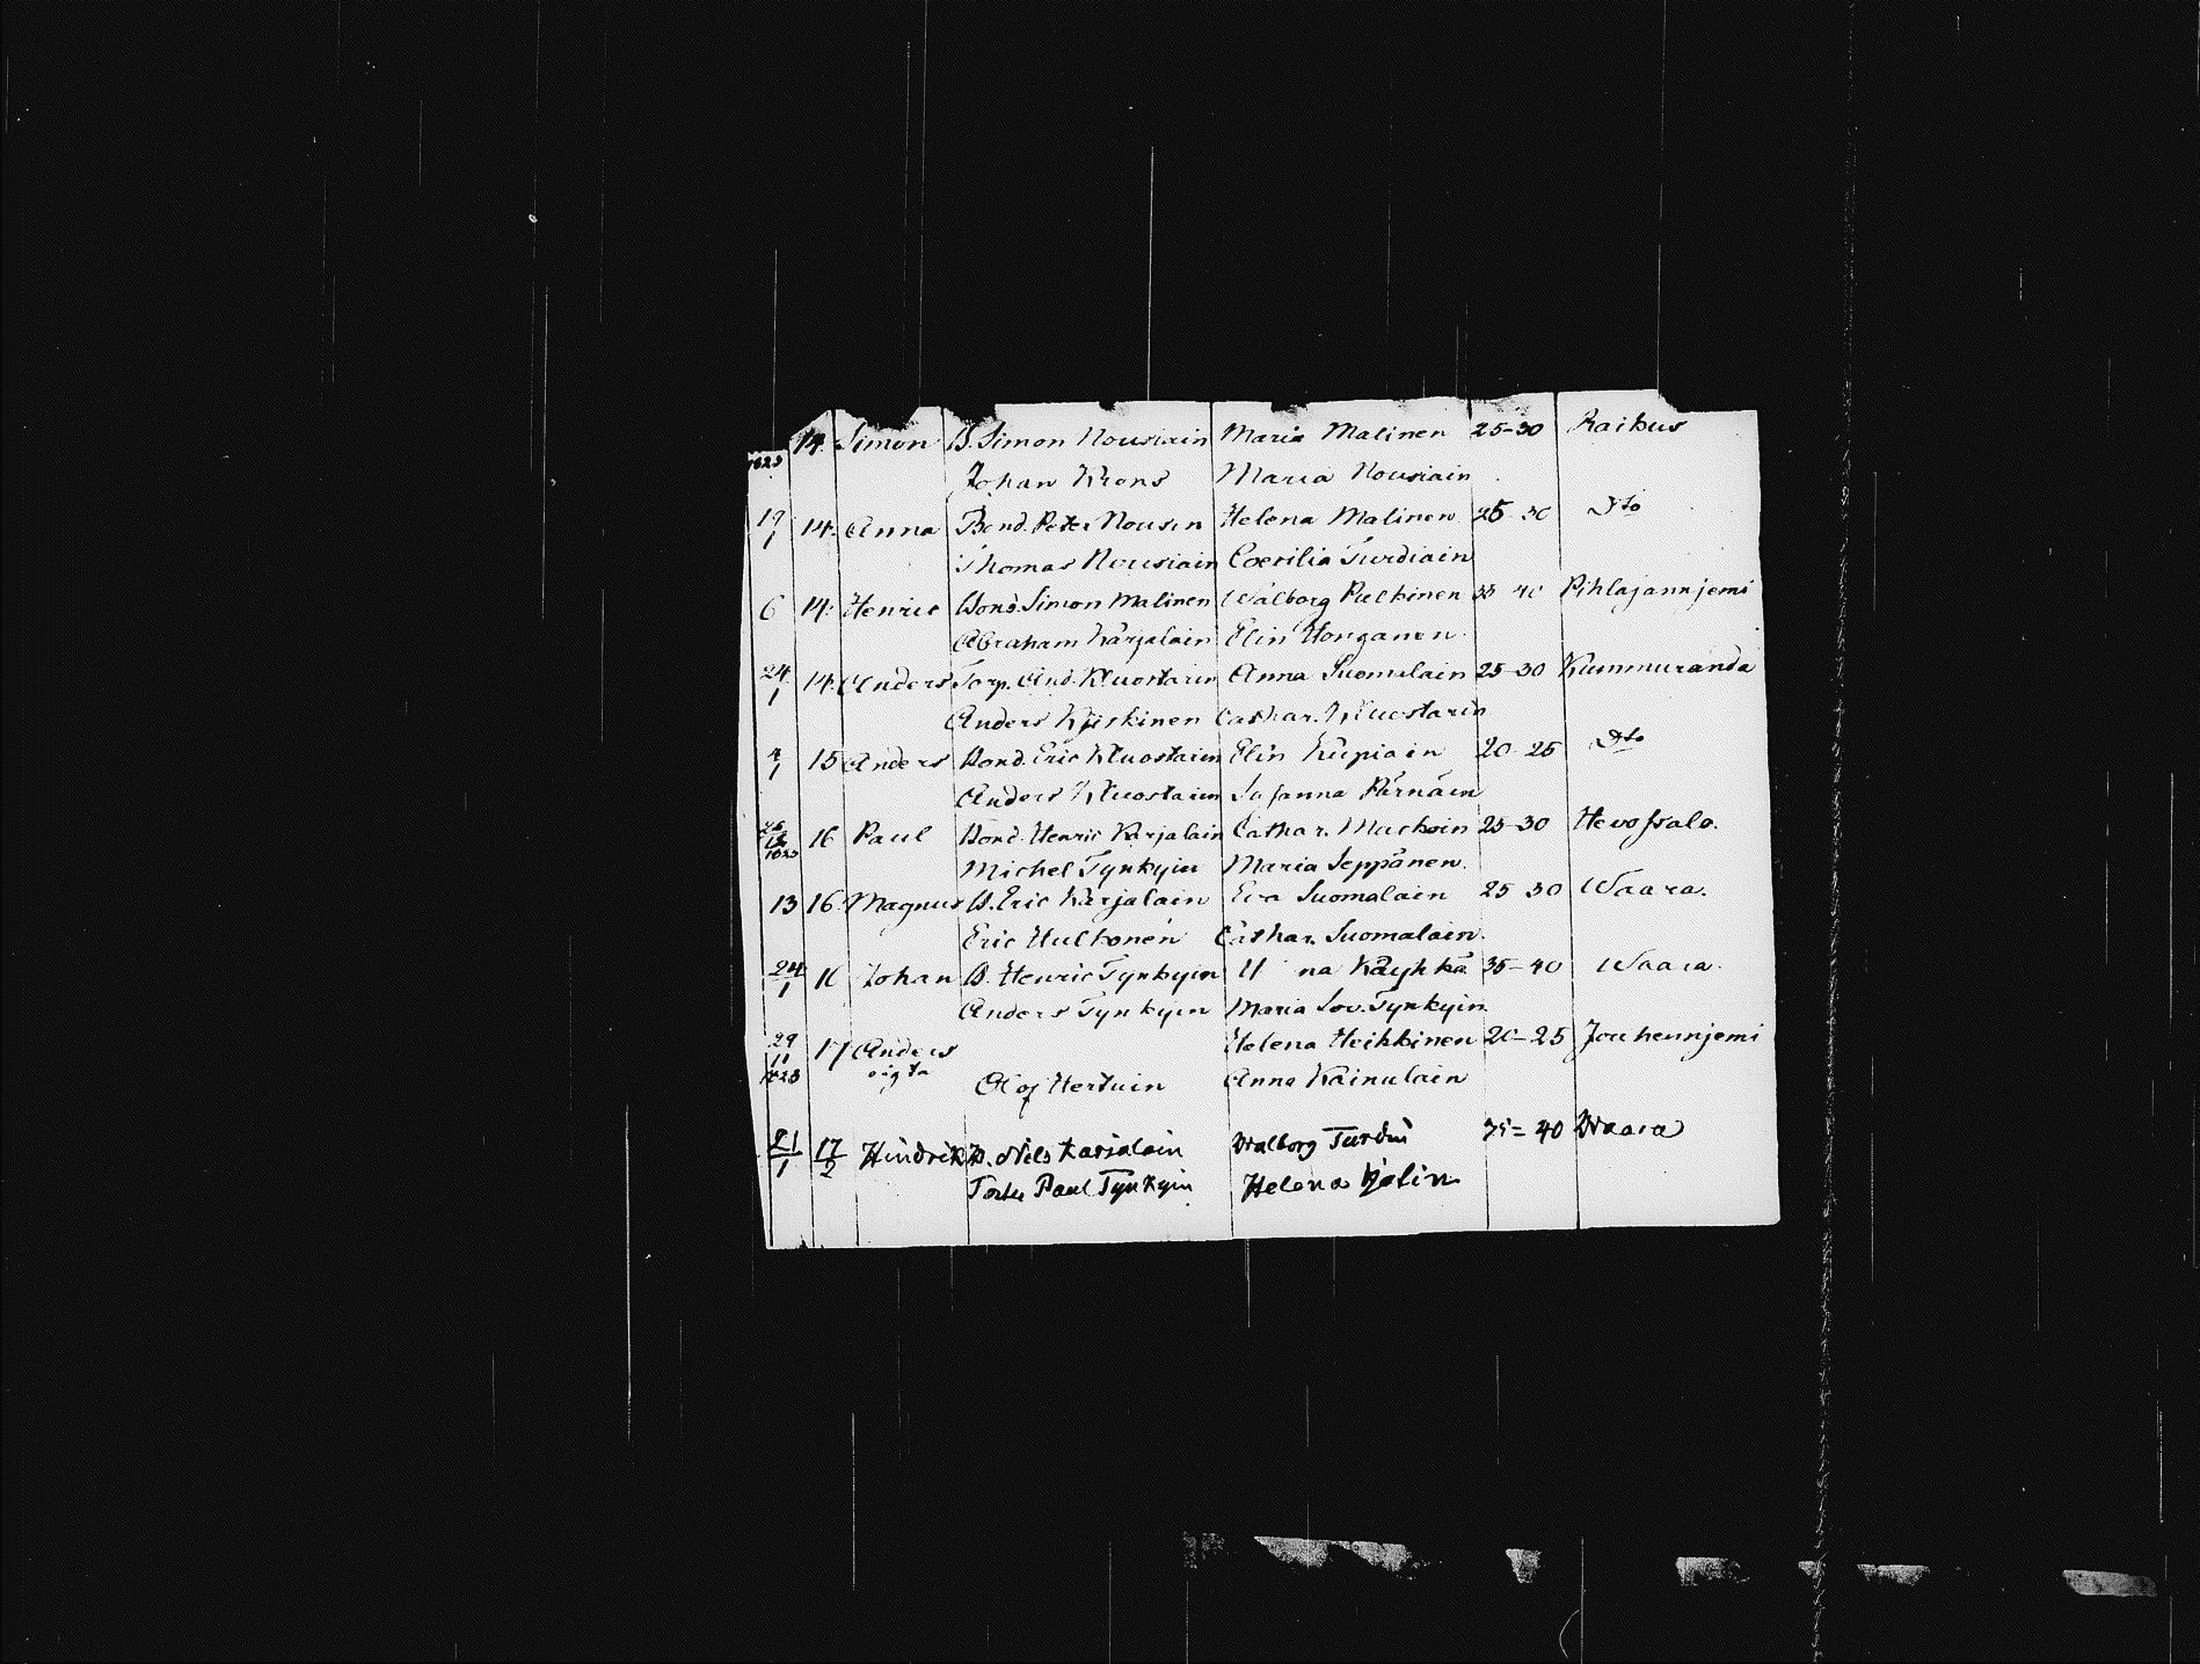 14. Simon B. Simon Nousiain Maria Malinen 25-30 Raikus
1823
Johan Krons Maria Nousiain
19/1 14. Anna Bond. Peter Nousin Helena Malinen 25-30 Dto
Thomas Nousiain Coecilia Turdiain
6 14. Henric Bond. Simon Malinen Walborg Pulkinen 35-40 Pihlajannjemi
Abraham Karjalain Elin Honganen.
24/1 14. Anders Torp. And. Kluostarin Anna Suomalain 25-30 Kummuranda
Anders Cathar. Kluostarin
4/1 15 Anders Bond. Eric Kluostarin Elin Kupiain 20-25 Dto
Anders Kluostarin Susanna Pärnäin
16 Paul Bond. Henric Karjalain Cathar. 25-30 Hevossalo.
Michel Tynkyin Maria Seppänen.
13 16. Magnus B. Eric Karjalain Eva Suomalain 25-30 Waara.
Eric Hulkonen Cathar. Suomalain.
24/1 16 Johan B. Henric Tynkyin na Käyhkä 35-40 Waara.
Anders Tynkyin Maria Lov. Tynkyin.
29/11 1823 17 Anders Helena Heikkinen 20-25 Jouhennjemi
oigta
Olof Hertuin Anna Kainulain
21/1 17/2 Hindrik B. Nils Karjalain Walborg 35=40 Waara
Paul Tynkyin Helena